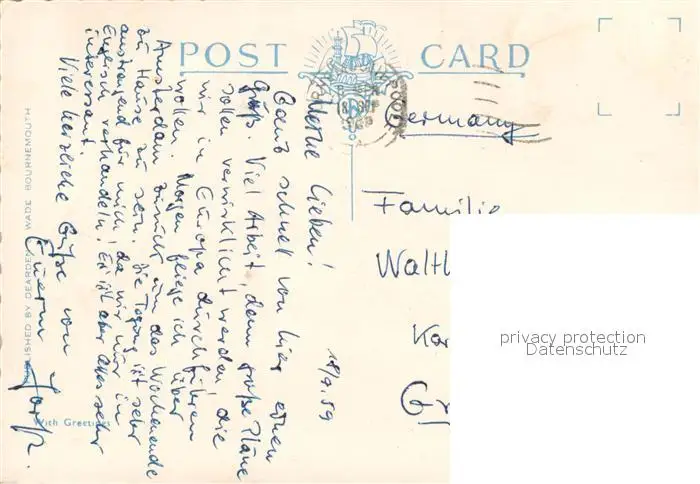 POST CARD
Germany
Familie
Walth
Kar
Gr
privacy protection
Datenschutz
18/9.59
Meine Lieben!
Ganz schnell von hier einen
Gruß. Viel Arbeit, denn große Pläne
sollen verwirklicht werden, die
wir in Europa durchführen
wollen. Morgen fliege ich über
Amsterdam zurück um das Wochenende
zu Hause zu sein. Die Tagung ist sehr
anstrengend für mich, da wir nur in
Englisch verhandeln. Es ist aber alles sehr
interessant.
Viele herzliche Grüße von
Eurem
With Greetings
PUBLISHED BY DEARDEN & WADE BOURNEMOUTH